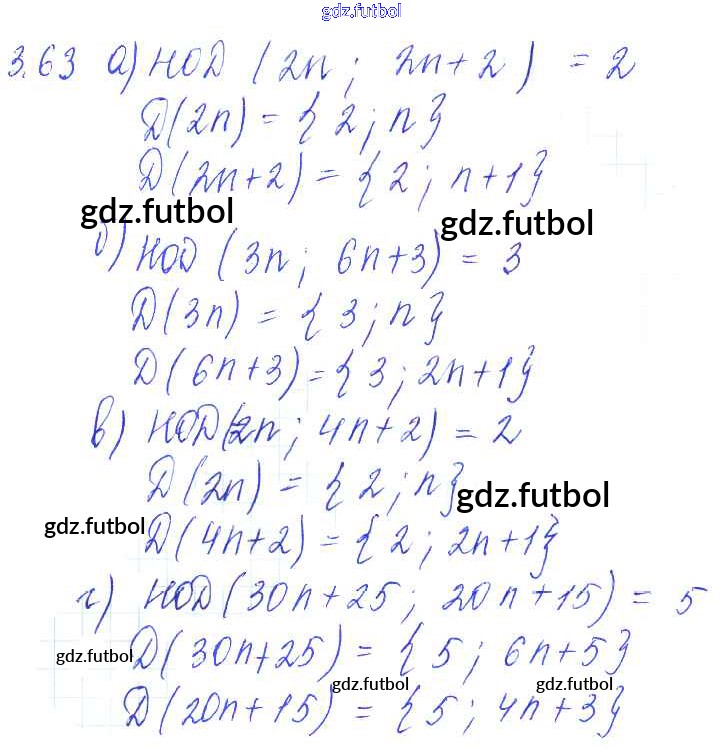 gdz.futbol
3.63 а) НОД (2n ; 2n+2) = 2
D(2n) = {2 ; n}
D(2n+2) = {2 ; n+1}
gdz.futbol gdz.futbol
б) НОД (3n ; 6n+3) = 3
D(3n) = {3 ; n}
D(6n+3) = {3 ; 2n+1}
в) НОД(2n ; 4n+2) = 2
D(2n) = {2 ; n}
gdz.futbol
gdz.futbol
D(4n+2) = {2 ; 2n+1}
г) НОД(30n+25 ; 20n+15) = 5
D(30n+25) = {5 ; 6n+5}
gdz.futbol
gdz.futbol gdz.futbol
D(20n+15) = {5 ; 4n+3}